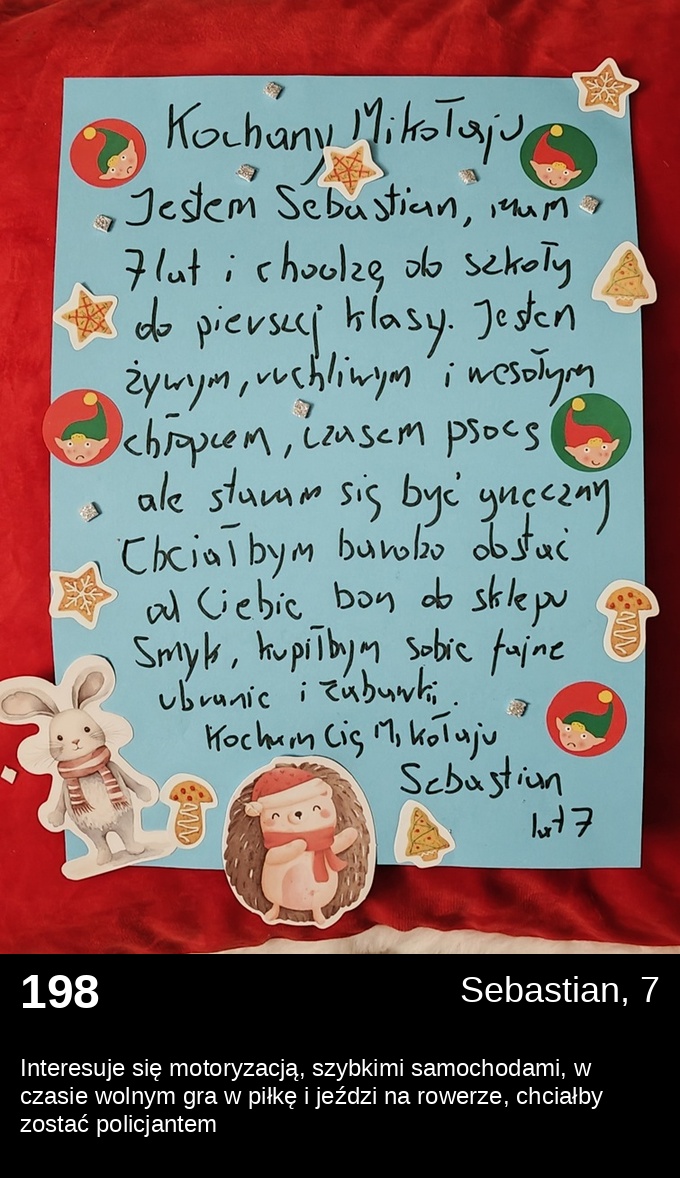 Kochany Mikołaju
Jestem Sebastian, mam
7 lat i chodzę do szkoły
do pierwszej klasy. Jestem
żywym, ruchliwym i wesołym
chłopcem, czasem psocę
ale staram się być grzeczny
Chciałbym bardzo dostać
od Ciebie bon do sklepu
Smyk, kupiłbym sobie fajne
ubranie i zabawki.
Kocham Cię Mikołaju
Sebastian
lat 7
198
Sebastian, 7
Interesuje się motoryzacją, szybkimi samochodami, w
czasie wolnym gra w piłkę i jeździ na rowerze, chciałby
zostać policjantem